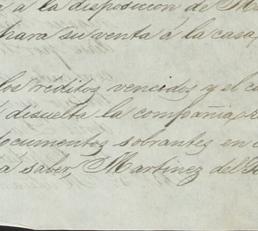 a a la disposicion de M
para su venta á la casa,
los créditos vencidos y el c
disuelta la compañia,
documentos sobrantes en
a saber, Martinez del